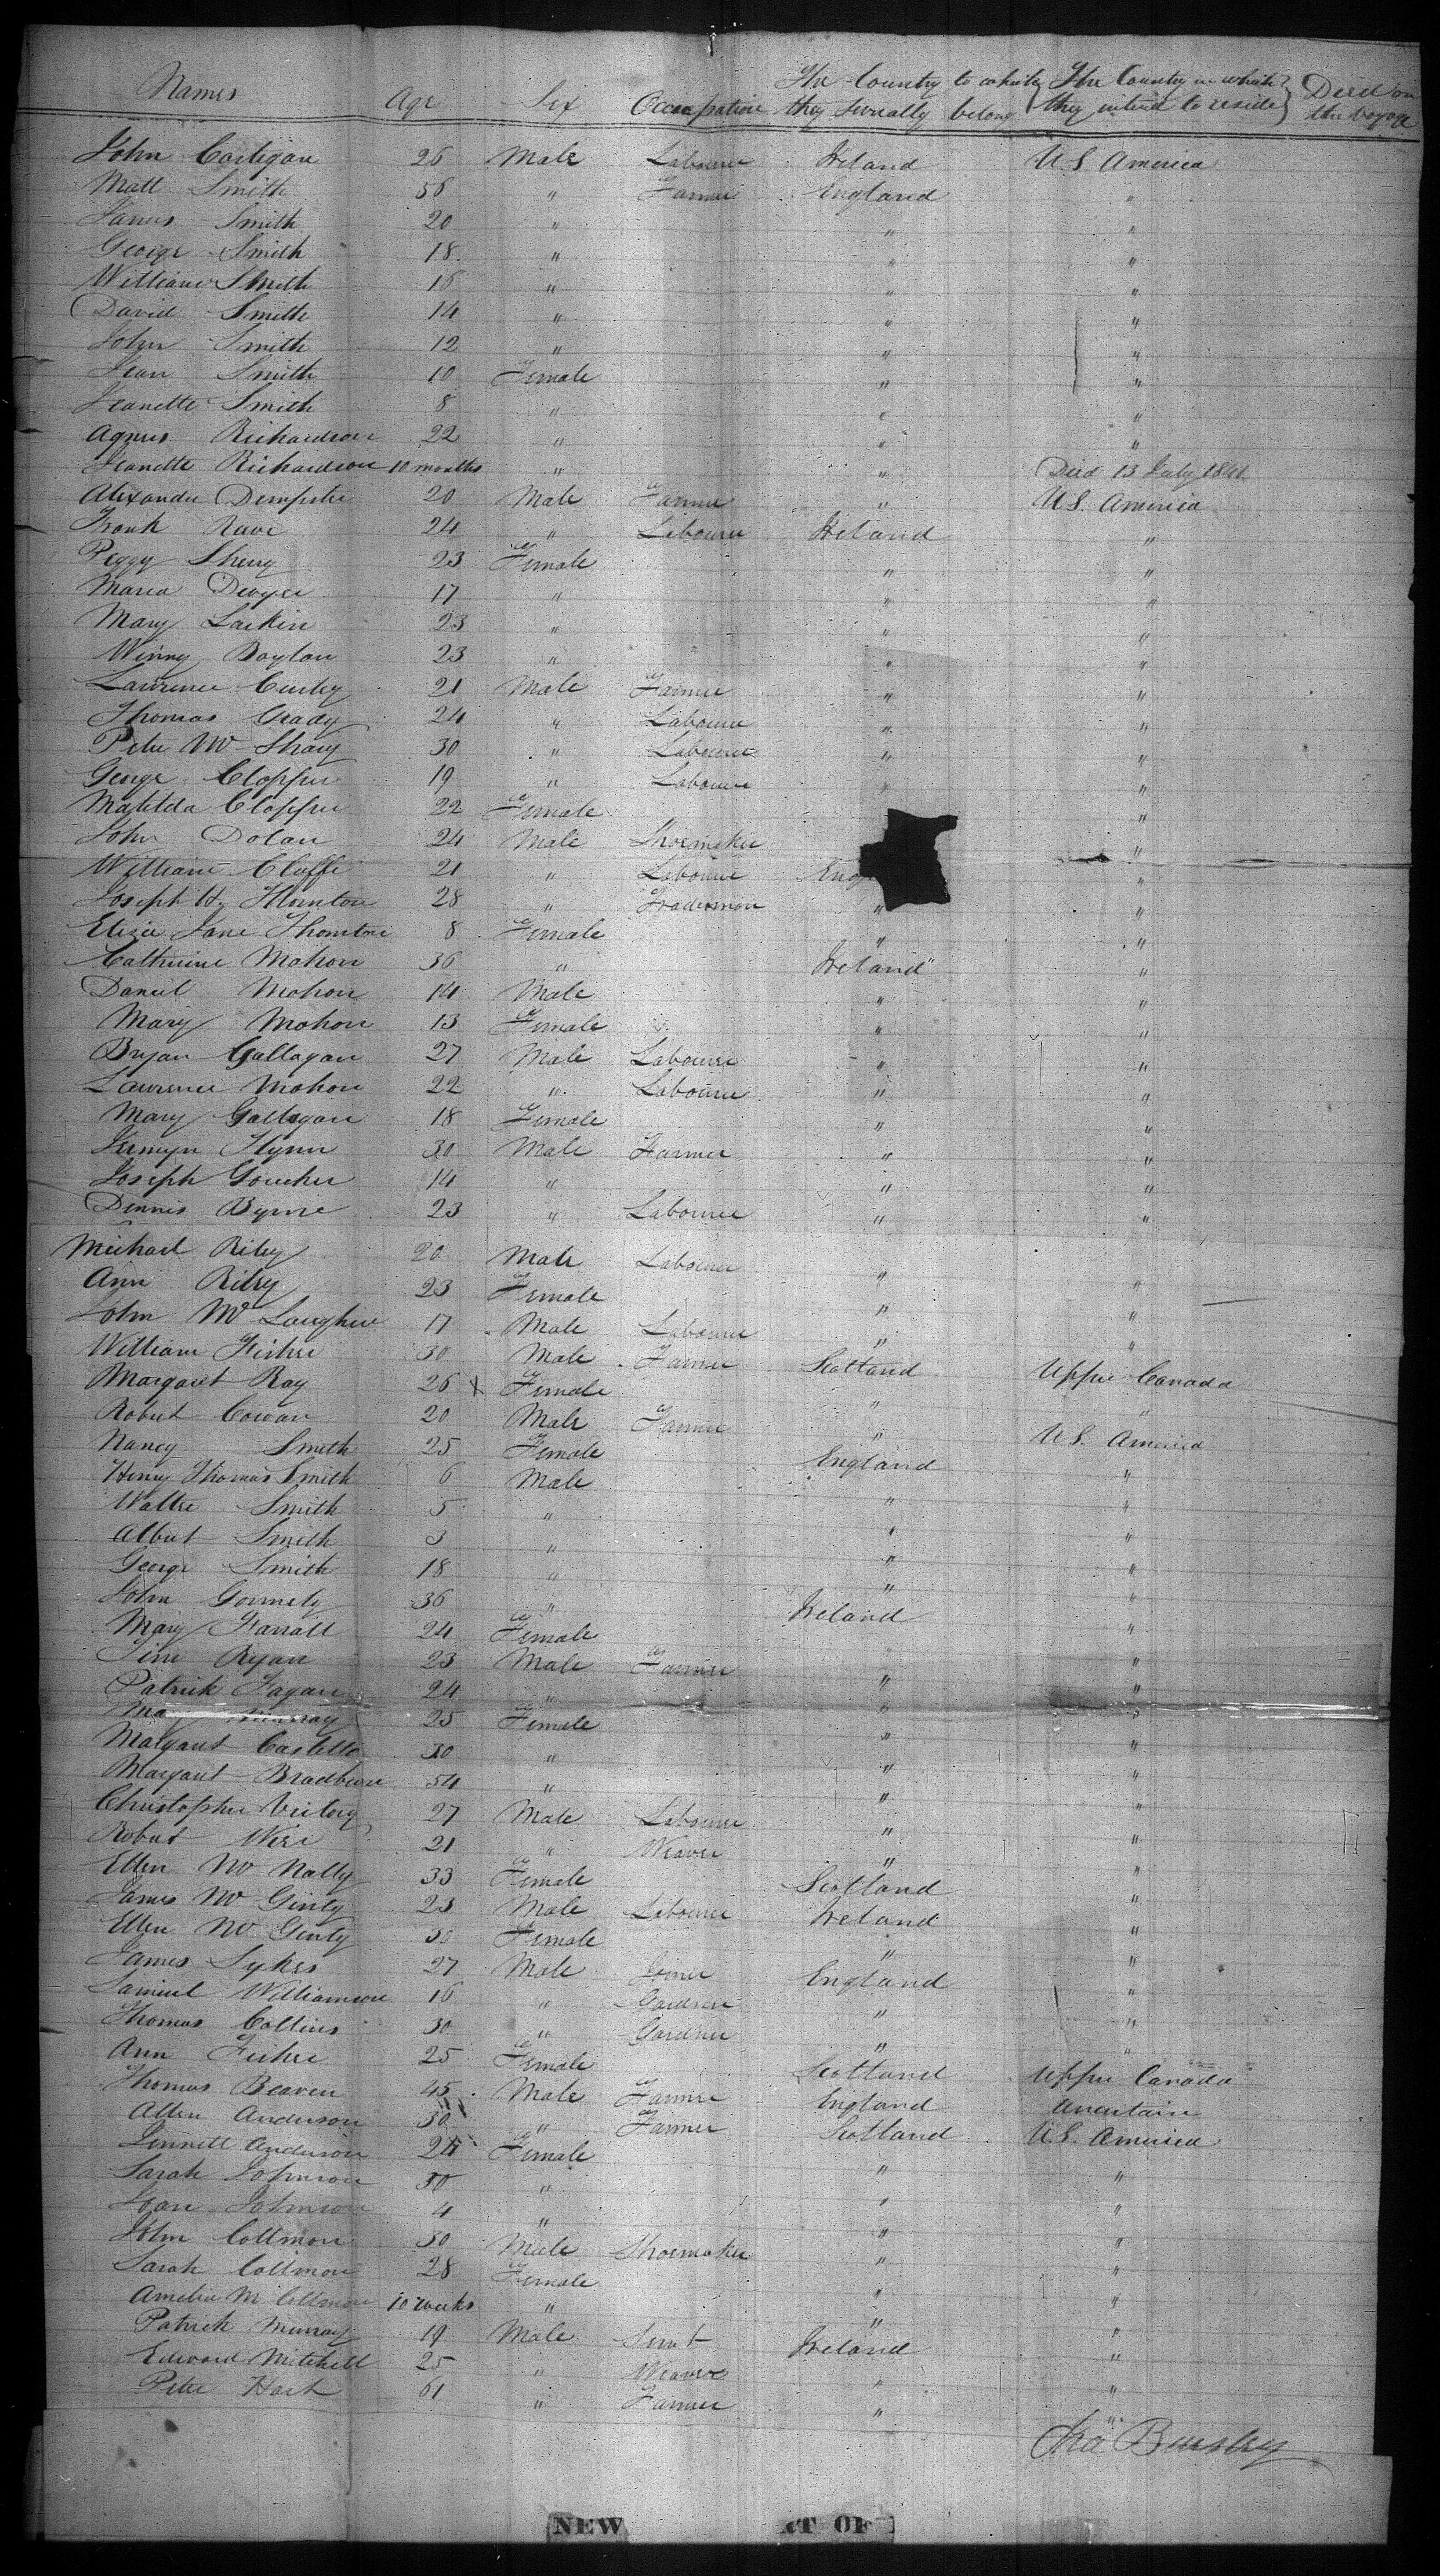 Names Age Sex Occupation The Country to which they severally belong The Country in which they intend to reside Died on the voyage
John Costigan 26 Male Labourer Ireland U.S. America
Matt Smith 56 " Farmer England "
James Smith 20 " " "
George Smith 18 " " "
William Smith 16 " " "
David Smith 14 " " "
John Smith 12 " " "
Jean Smith 10 Female " "
Jeanette Smith 8 " " "
Agnes Richardson 22 " " "
Jeanette Richardson 10 months " " Died 13 July
Alexander Dempster 20 Male Farmer " U.S. America
Frank 24 " Labourer Ireland "
Peggy 23 Female " "
Maria Dwyer 17 " " "
Mary Larkin 23 " " "
Winny Boylan 23 " " "
Laurence Curley 21 Male Farmer " "
Thomas Grady 24 " Labourer " "
Peter Mc Shary 30 " Labourer " "
George Clopper 19 " Labourer " "
Matilda Clopper 22 Female "
John Dolan 24 Male Shoemaker "
William Cluffe 21 " Labourer Eng "
Joseph H. 28 " Tradesman " "
Eliza Jane Thornton 8 Female " "
Catherine Mahon 36 " Ireland "
Daniel Mahon 14 Male " "
Mary Mahon 13 Female " "
Bryan Gallagan 27 Male Labourer " "
Lawrence Mahon 22 " Labourer " "
Mary Gallagan 18 Female " "
Flynn 30 Male Farmer " "
Joseph Goucher 14 " " "
Dennis Byrne 23 " Labourer " "
Michael Riley 20 Male Labourer " "
Ann Riley 23 Female " "
John Mc Laughlin 17 Male Labourer " "
William Fisher 30 Male Farmer Scotland Upper Canada
Margaret Ray 26 X Female " "
Robert Cowan 20 Male Farmer " U.S. America
Nancy Smith 25 Female England "
Henry Thomas Smith 6 Male " "
Walter Smith 5 " " "
Albert Smith 3 " " "
George Smith 18 " " "
John Gormely 36 " Ireland "
Mary Farrall 24 Female " "
Tim Ryan 23 Male Farmer " "
Patrick Fagan 24 " " "
Ma Murray 25 Female " "
Margaret Castello 30 " " "
Margaret Bradburn 54 " " "
Christopher Victory 27 Male Labourer " "
Robert Weir 21 " Weaver " "
Ellen Mc Nally 33 Female Scotland "
James Mc Ginty 23 Male Labourer Ireland "
Ellen Mc Ginty 30 Female " "
James Sykes 27 Male Joiner England "
Samuel Williamson 16 " Gardner " "
Thomas Collins 30 " Gardner " "
Ann Fisher 25 Female Scotland Upper Canada
Thomas Beaven 45 Male Farmer England Uncertain
Allen Anderson 30 " Farmer Scotland U.S. America
Jennett Anderson 24 Female " "
Sarah Johnson 30 " " "
Jean Johnson 4 " " "
John Coltman 30 Male Shoemaker " "
Sarah Coltman 28 Female " "
Amelia M Coltman 10 weeks " " "
Patrick Murray 19 Male Servt Ireland "
Edward Mitchell 25 " Weaver " "
Peter Hart 61 " Farmer " "
Bursley
NEW CT OF